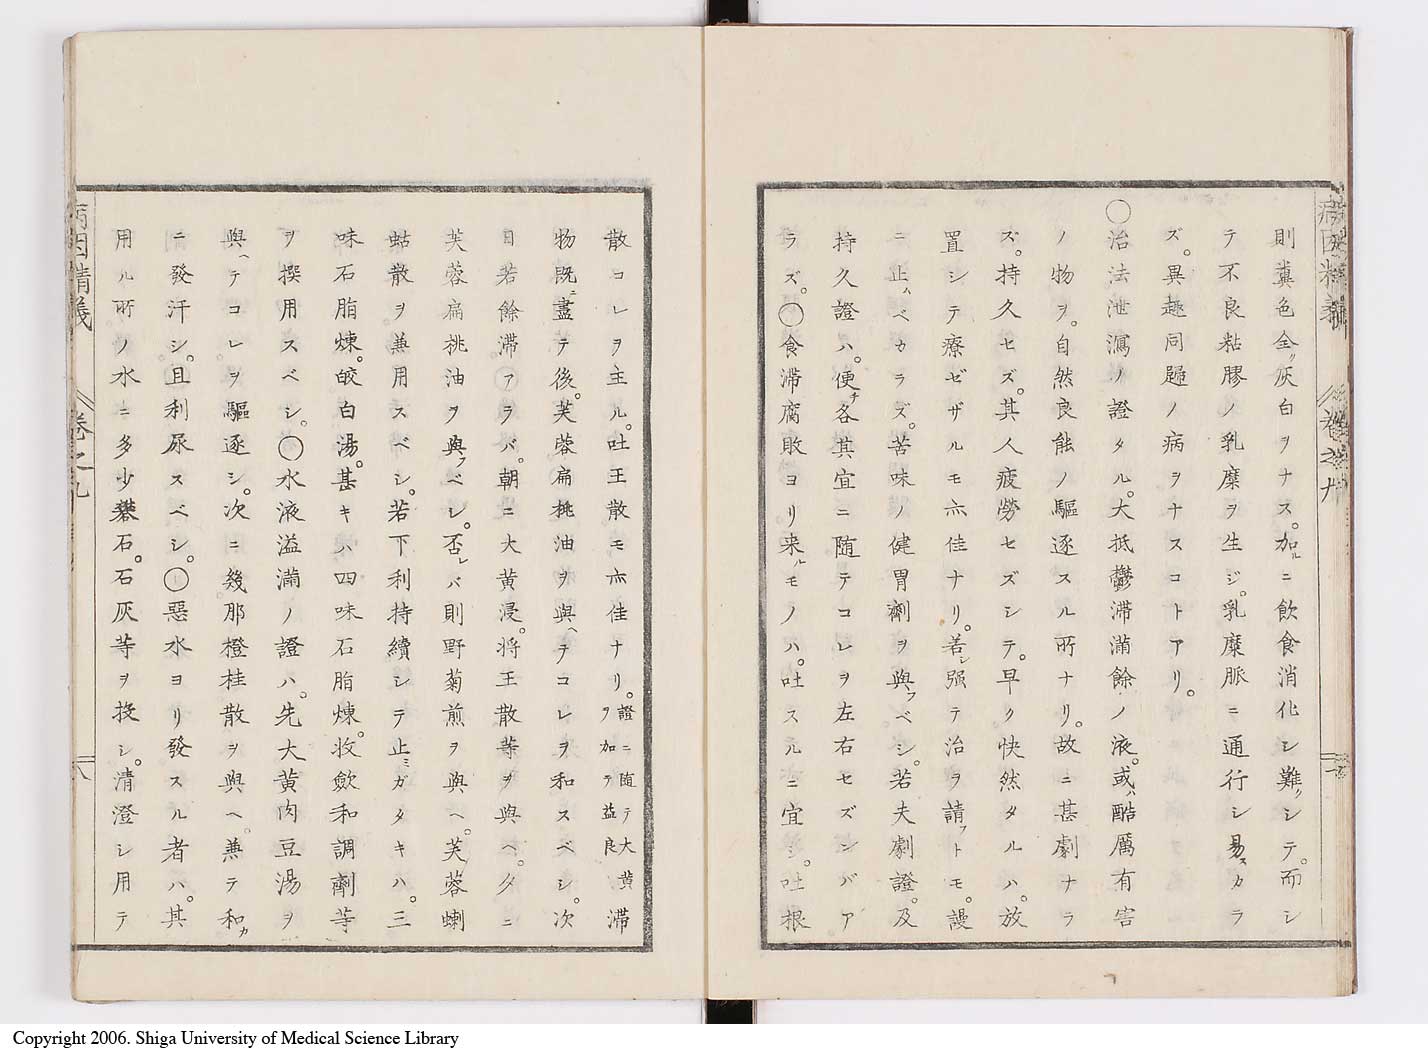 則糞色全ク灰白ヲナス。加ルニ飲食消化シ難クシテ。而シ
テ不良粘膠ノ乳糜ヲ生ジ。乳糜脈ニ通行シ易スカラ
ズ。異趣同歸ノ病ヲナスコトアリ。
〇治法泄瀉ノ證タル。大抵鬱滞滿餘ノ液。或ハ酷厲有害
ノ物ヲ。自然良能ノ驅逐スル所ナリ。故ニ甚劇ナラ
ズ。持久セズ。其人疲勞セズシテ。早ク快然タルハ。放
置シテ療ゼザルモ亦佳ナリ。若シ强テ治ヲ請フトモ。謾
ニ止ムベカラズ。苦味ノ健胃劑ヲ與フベシ。若夫劇證。及
持久證ハ。便チ各其宜ニ随テコレヲ左右セズンバア
ラズ。〇食滞腐敗ヨリ来ルモノハ。吐スルニ宜シ。吐根
散コレヲ主ル。吐王散モ亦佳ナリ。證ニ随テ大黄ヲ加テ益良 滞
物既ニ盡テ後。芙蓉扁桃油ヲ與ヘテコレヲ和スベシ。次
日若餘滞アラバ。朝ニ大黄浸。将王散等ヲ與ヘ。夕ニ
芙蓉扁桃油ヲ與フベシ。否レバ則野菊煎ヲ與ヘ。芙蓉蝲
蛄散ヲ兼用スベシ。若下利持續シテ止ミガタキハ。三
味石脂煉。皎白湯。甚キハ四味石脂煉。收歛和調劑等
ヲ撰用スベシ。〇水液溢滿ノ證ハ。先大黄肉豆湯ヲ
與ヘテコレヲ驅逐シ。次ニ幾那橙桂散ヲ與ヘ。兼テ和カ
ニ發汗シ。且利尿スベシ。〇惡水ヨリ發スル者ハ。其
用ル所ノ水ニ多少礬石。石灰等ヲ投シ。清澄シ用テ
病因精義
卷之九
八
Copyright 2006. Shiga University of Medical Science Library